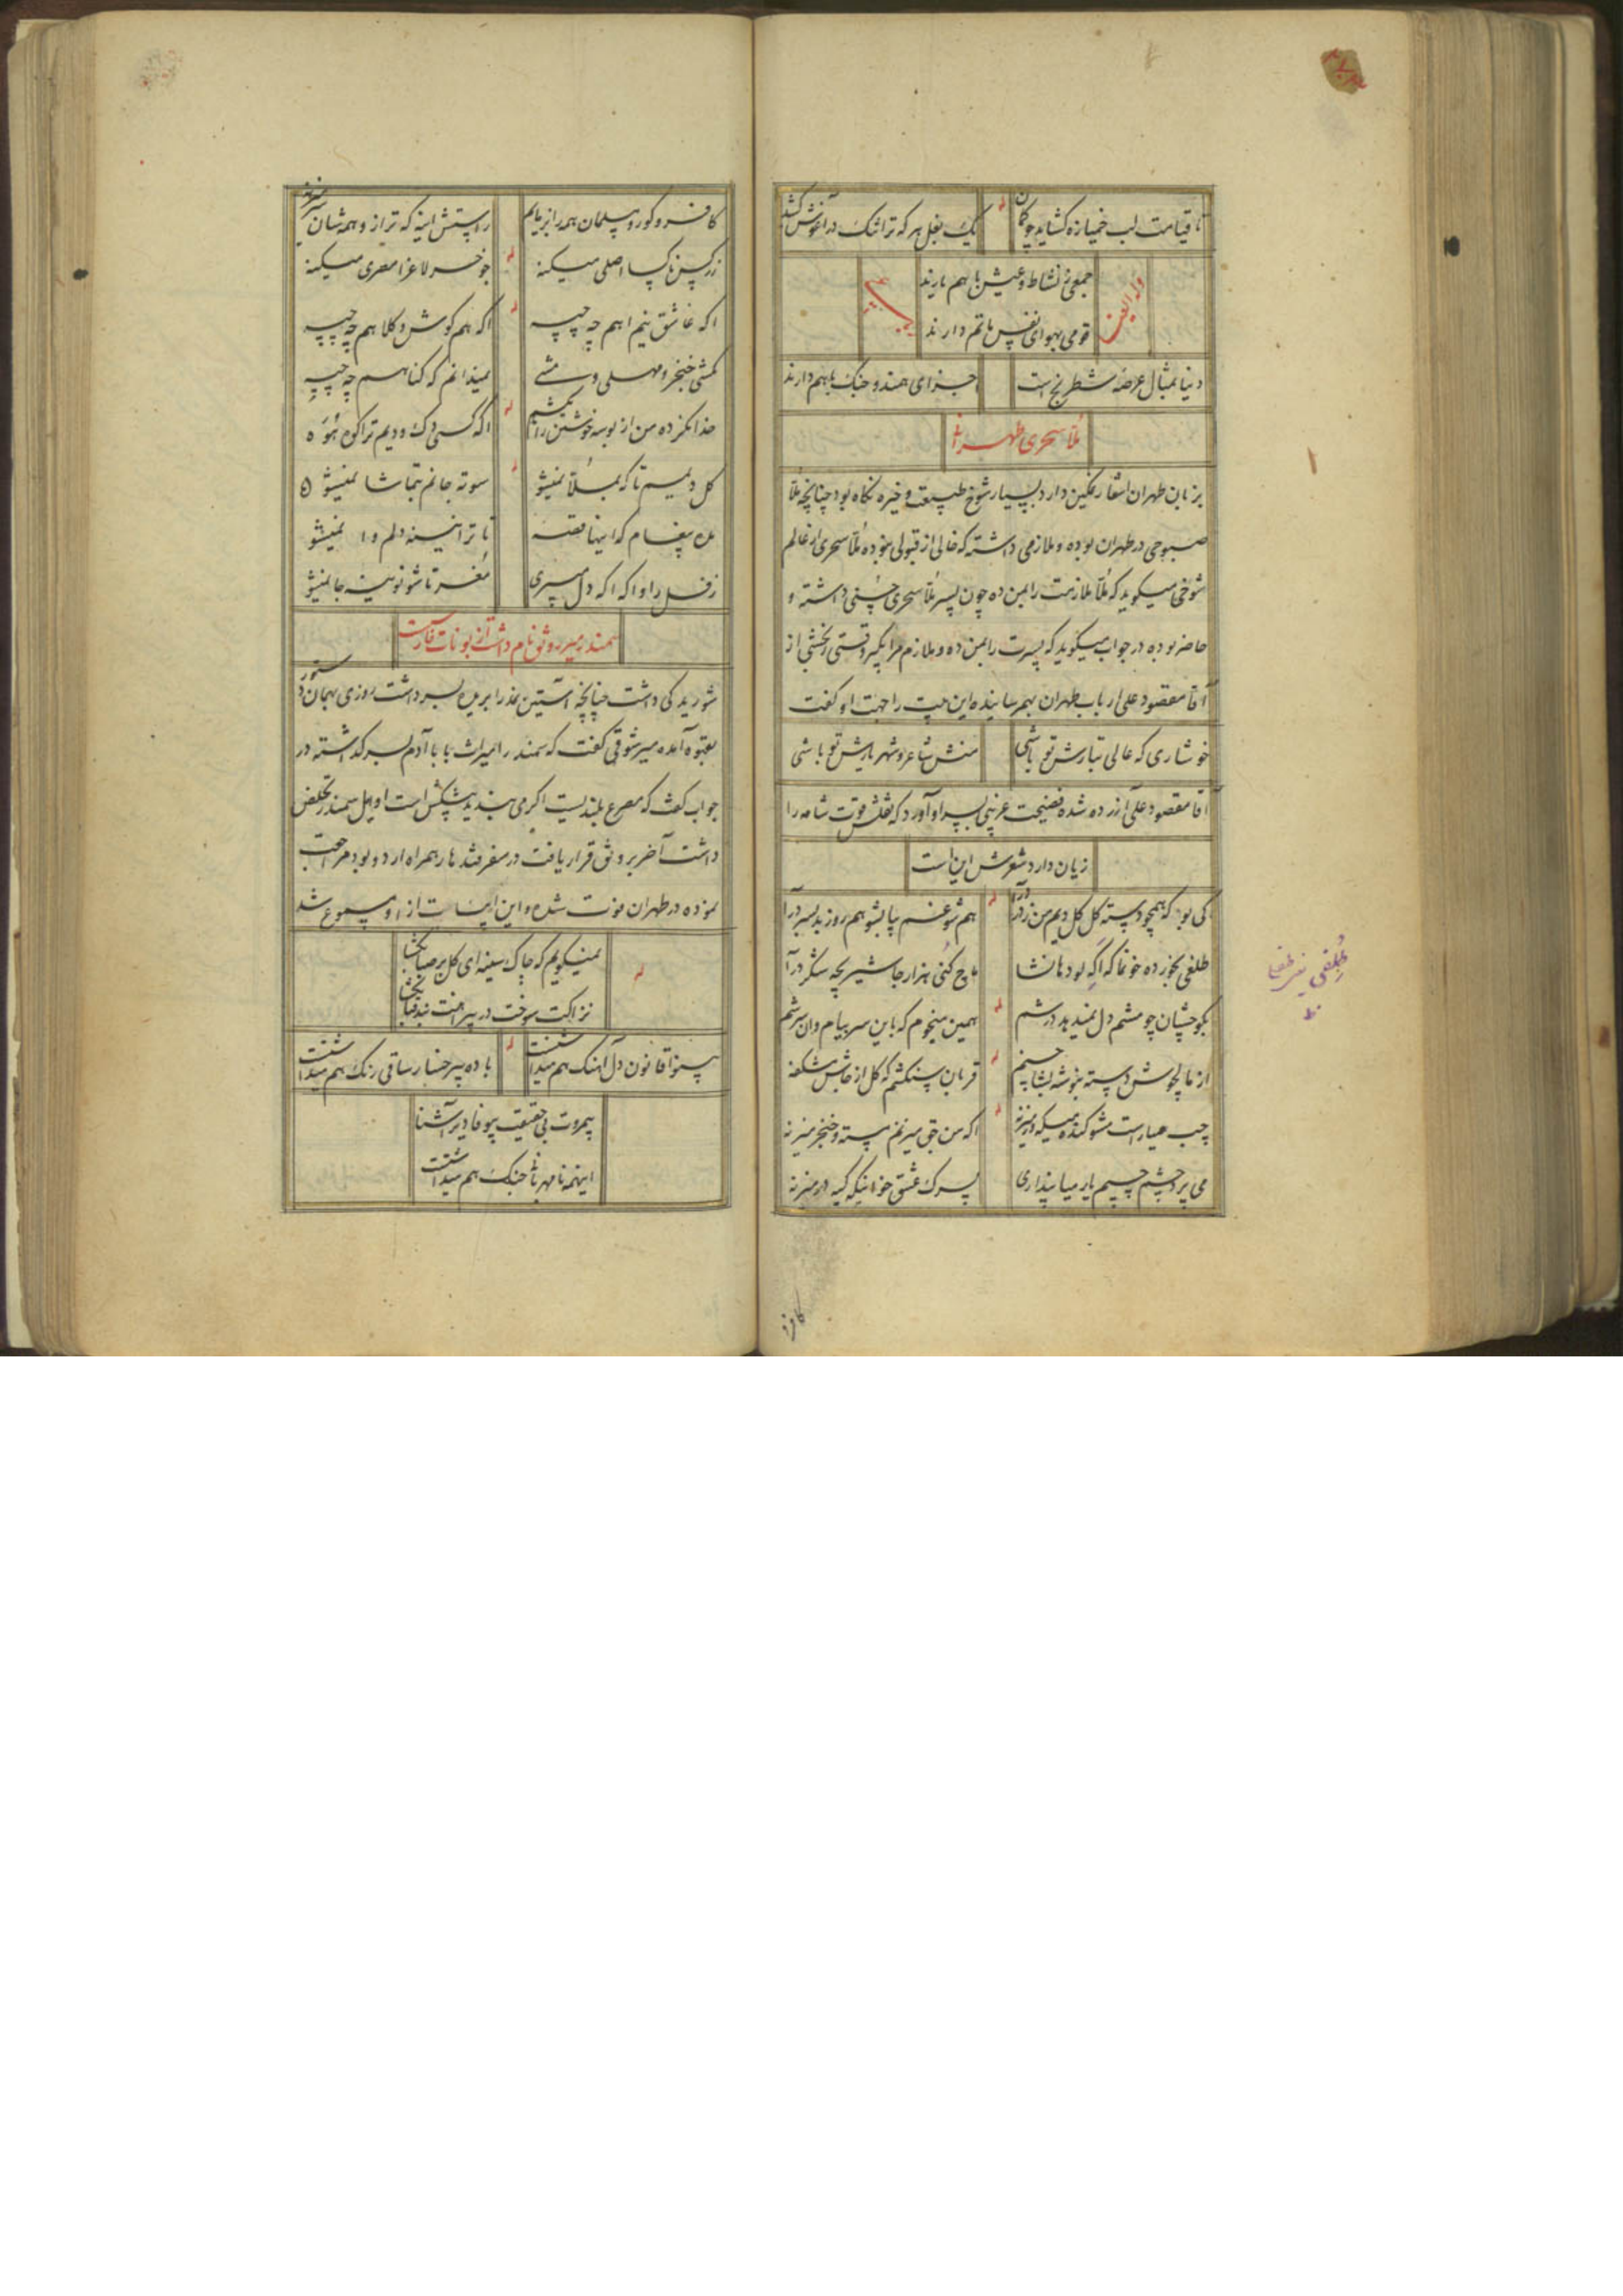 تا قیامت لب خمیازه کشاید چو کمان
یک بغل هر که ترا تنک در آغوش کشد
جمعی ز نشاط و عیش باهم یارند
قومی بهوای نفس ماتم دارند
دنیا بمثال عرصه شطرنج است
اجزای همند و جنک باهم دارند
ملا سحری طهرانی
بزبان طهران اشعار رنکین دارد بسیار شوخ طبیعت و خیره نکاه بود چنانچه ملا
صبوحی در طهران بوده و ملازمی داشته که خالی از قبولی نبوده ملا سحری از عالم
شوخی میکوید که ملا ملازمت را بمن ده چون پسر ملا سحری حسنی داشته و
حاضر بوده در جواب میکوید که پسرت را بمن ده و ملازم مرا بکیر وقتی رخشی از
آقا مقصود علی ارباب طهران بهم رسانیده این بیت را جهت او کفت
خوشاری که عالی تبارش تو باشی
منش شاعر و شهریارش تو باشی
آقا مقصود علی آزرده شده فضیحت عربی بسر او آورد که نقلش قوت شامه را
زیان دارد شعرش این است
کی بود که همچو دسته کل کل دیم من ز در درآ
هم شو غم بپا بشو هم روز بد بسر درآ
طلغی بخورده خونما که اکه بود هانشا
ماچ کنی هزار جا شیر بچه شکر درآ
بکو چشان چو مشم دل نمیدبد درشم
همین میخوم که باین سر بیام وان سر شم
قربان بنکشم که کل از خاش شکفه
چپ میزنه
اکه من حق میزنم پسته و خنجر میزنه
می پرد چشم چپم یار میا پنداری
پسرک عشق خدا نیکه کیه در میزنه
کافر
کافر و کور و مسلمان همه را
راستش اینه که تراز و همه شان
زرکسن ناکسا اصلی میکنه
جو خسر لاغرا مصری میکنه
اکه عاشق نیم اهم چه چپیه
اکه هم کوش و کلا هم چه چپیه
کمشی خنجر و مهلی وسمشے
نمیدانم که کناهم چه چپیه
خدا نکرده من از بوسه خوشتن را بکشم
کل دیمیم تا که بمبلا نمیشو
سوته جانم بتماشا نمیشو
تا ترا نینه دلم وا نمیشو
زفل را واکه اکه دل میبری
مغر تا شونو مینه جا نمیشو
سمندر میر روشن نام داشت از بونات فارس است
شوریدکی داشت چنانچه آستین نمد را بریده بسر داشت روزی بهمان دستور
بقهوه آمده میر شوقی کفت که سمندر را میراث بابا آدم بسر کذاشته در
جواب کفت که مصرع بلندیست اکر می بندید پیشکش است اوایل سمندر تخلص
داشت آخر بر وثق قرار یافت در سفر قندهار همراه اردو بود مراجعت
نموده در طهران فوت شده و این ابیات از او مسموع شد
نمیکویم که چاک سینه ای کل بر صبا بکشا
نزاکت سوخت در پیراهنت بند قبا بکشا
بینوا قانون دل آهنک هم میداشتست
باده بیرخسار ساقی رنک هم میداشتست
بیمروت بی حقیقت بیوفا دیر آشنا
اینهمه نامهربانی جنک هم میداشتست